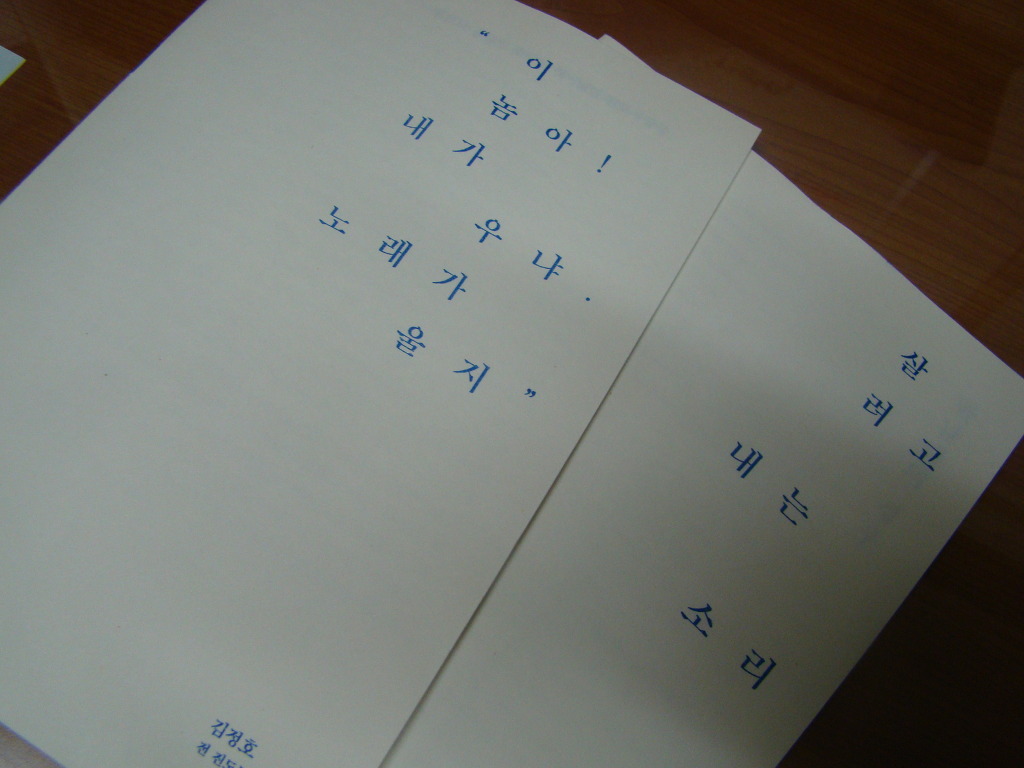 “이
놈아!
내가
우냐.
노래가
울지”
김정호
전 진도
살
려고
내는
소
리